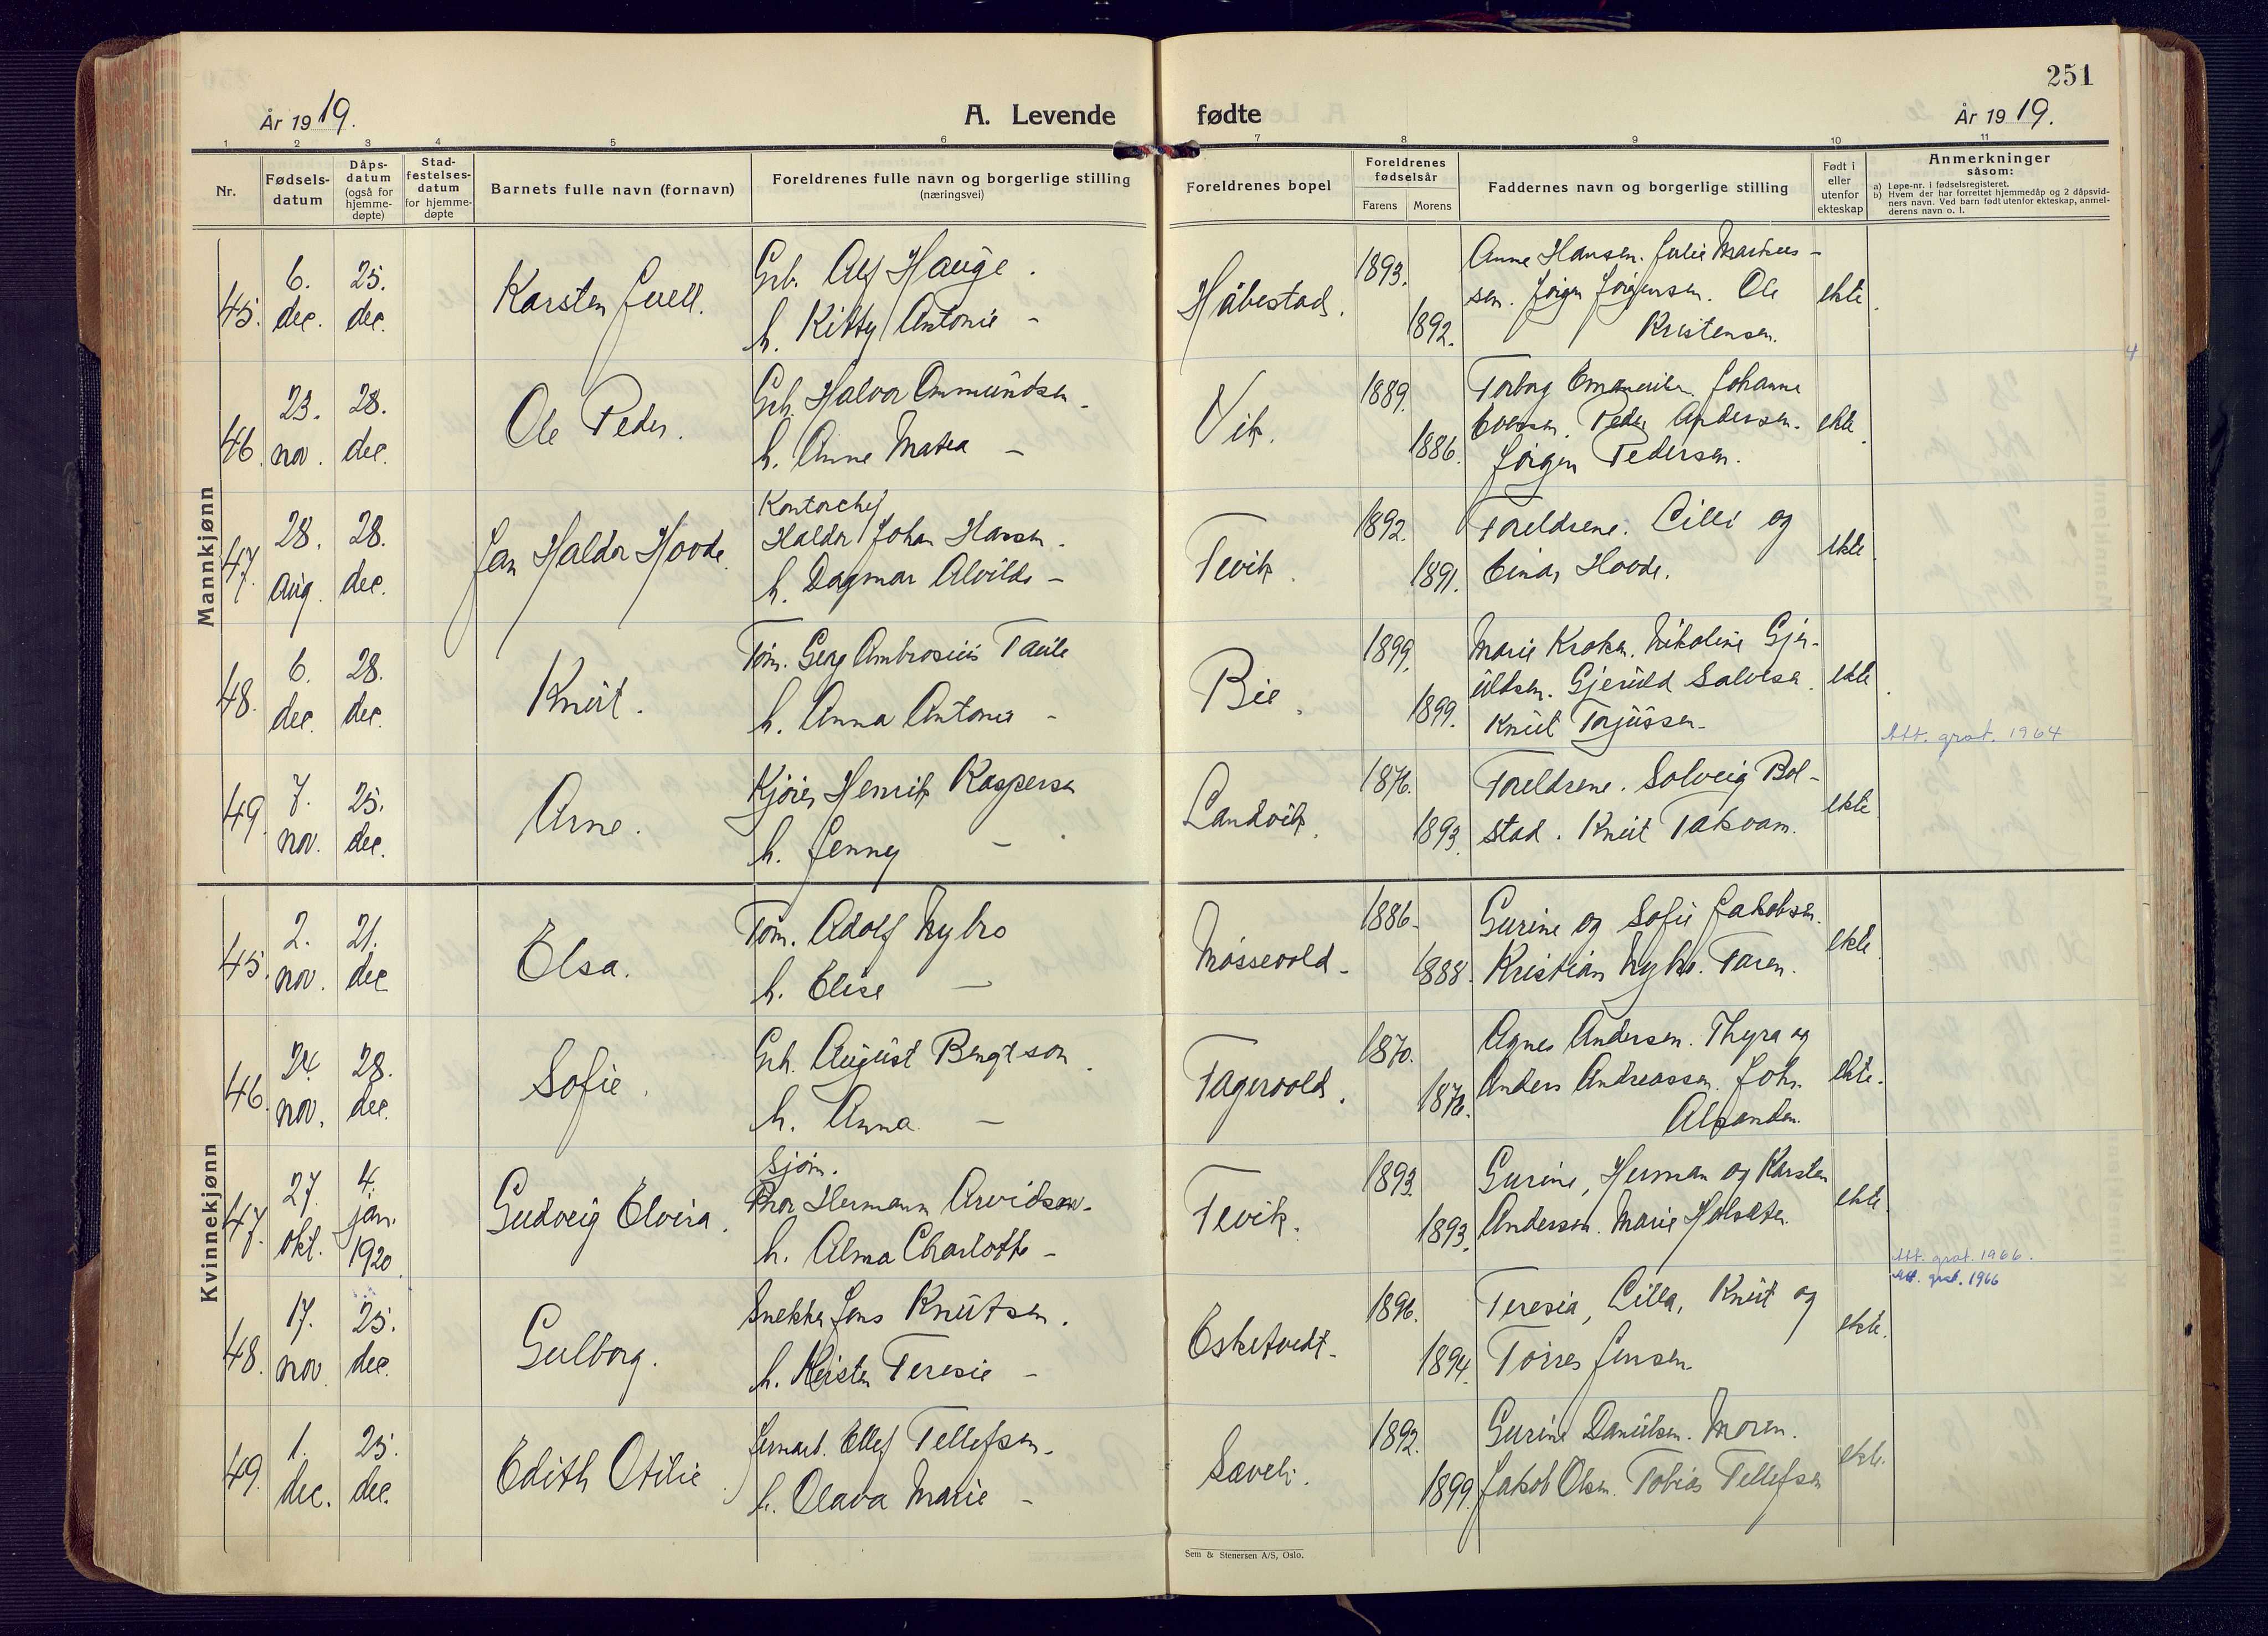 251
År 1919.
A. Levende fødte
År 1919.
1 2 3 4 5 6 7 8 9 10 11
Nr.
Fødsels-
datum
Dåps-
datum
(også for
hjemme-
døpte)
Stad-
festelses-
datum
for hjemme-
døpte
Barnets fulle navn (fornavn)
Foreldrenes fulle navn og borgerlige stilling
(næringsvei)
Foreldrenes bopel
Foreldrenes
fødselsår
Farens Morens
Faddernes navn og borgerlige stilling
Født i
eller
utenfor
ekteskap
Anmerkninger
såsom:
a) Løpe-nr. i fødselsregisteret.
b) Hvem der har forrettet hjemmedåp og 2 dåpsvid-
ners navn. Ved barn født utenfor ekteskap, anmel-
derens navn o. l.
Mannkjønn
45. 6. dec. 25. dec. Karsten Juell.
Grb. Alf Hauge.
h. Kitty Antonie -
Håbestad. 1893. 1892.
Anne Hansen. Julie Markus-
sen. Jørgen Jørgensen. Ole
Kristensen.
ekte.
46. 23. nov. 28. dec. Ole Peder.
Grb. Halvor Onmundsen.
h. Anne Matea -
Vik. 1889. 1886.
Torborg Johanne
Evensen. Peder Andersen.
Jørgen Pedersen.
ekte.
47. 28. aug. 28. dec. Jan Haldor Hovde.
Kontorchef
Haldor Johan Hansen.
h. Dagmar Alvilde -
Fevik. 1892. 1891.
Foreldrene. Cilli og
Einar Hovde.
ekte.
48. 6. dec. 28. dec. Knut.
Tøm. Georg Ambrosius Taule
h. Anna Antonie -
Bie. 1899. 1899.
Marie Kroken. Nikoline Gjer-
uldsen. Gjeruld Salvesen.
Knut Torjussen.
ekte.
Att. grat. 1964
49. 7. nov. 25. dec. Arne.
Kjører Henrik Kaspersen
h. Jenny -
Landvik. 1876. 1893.
Foreldrene. Solveig Bol-
stad. Knut Takvam.
ekte
Kvinnekjønn
45. 2. nov. 21. dec Elsa.
Tøm. Adolf Nybro
h. Elise -
Møssevold. 1886. 1888.
Gurine og Sofie Jakobsen.
Kristian Nybro. Faren.
ekte.
46. 24. nov. 28. dec. Sofie.
Grb. August Bengtson.
h. Anna -
Fagervold. 1870. 1876.
Agnes Andersen. Thyra og
Anders Andreassen. Joh.
ekte.
47. 27. okt. 4. jan. 1920. Gudveig Elvira.
Sjøm.
Thor Hermann Arvidson.
h. Alma Charlotte -
Fevik. 1893. 1893.
Gurine, Herman og Karsten
Andersen. Marie Holsæter.
ekte.
Att. grat. 1966.
Att. grat. 1966
48. 17. nov. 25. dec. Gulborg.
Snekker Jens Knutsen.
h. Kirsten Teresie -
Esketvedt. 1896. 1894.
Teresia, Cilla, Knut og
Tørres Jensen.
ekte.
49. 1. dec. 25. dec. Edith Otilie.
Jernarb. Ellef Tellefsen.
h. Olava Marie -
Saveli. 1892. 1899.
Gurine Danielsen. Moren.
Jakob Olsen. Tobias Tellefsen
ekte.
Sem & Stenersen A/S, Oslo.